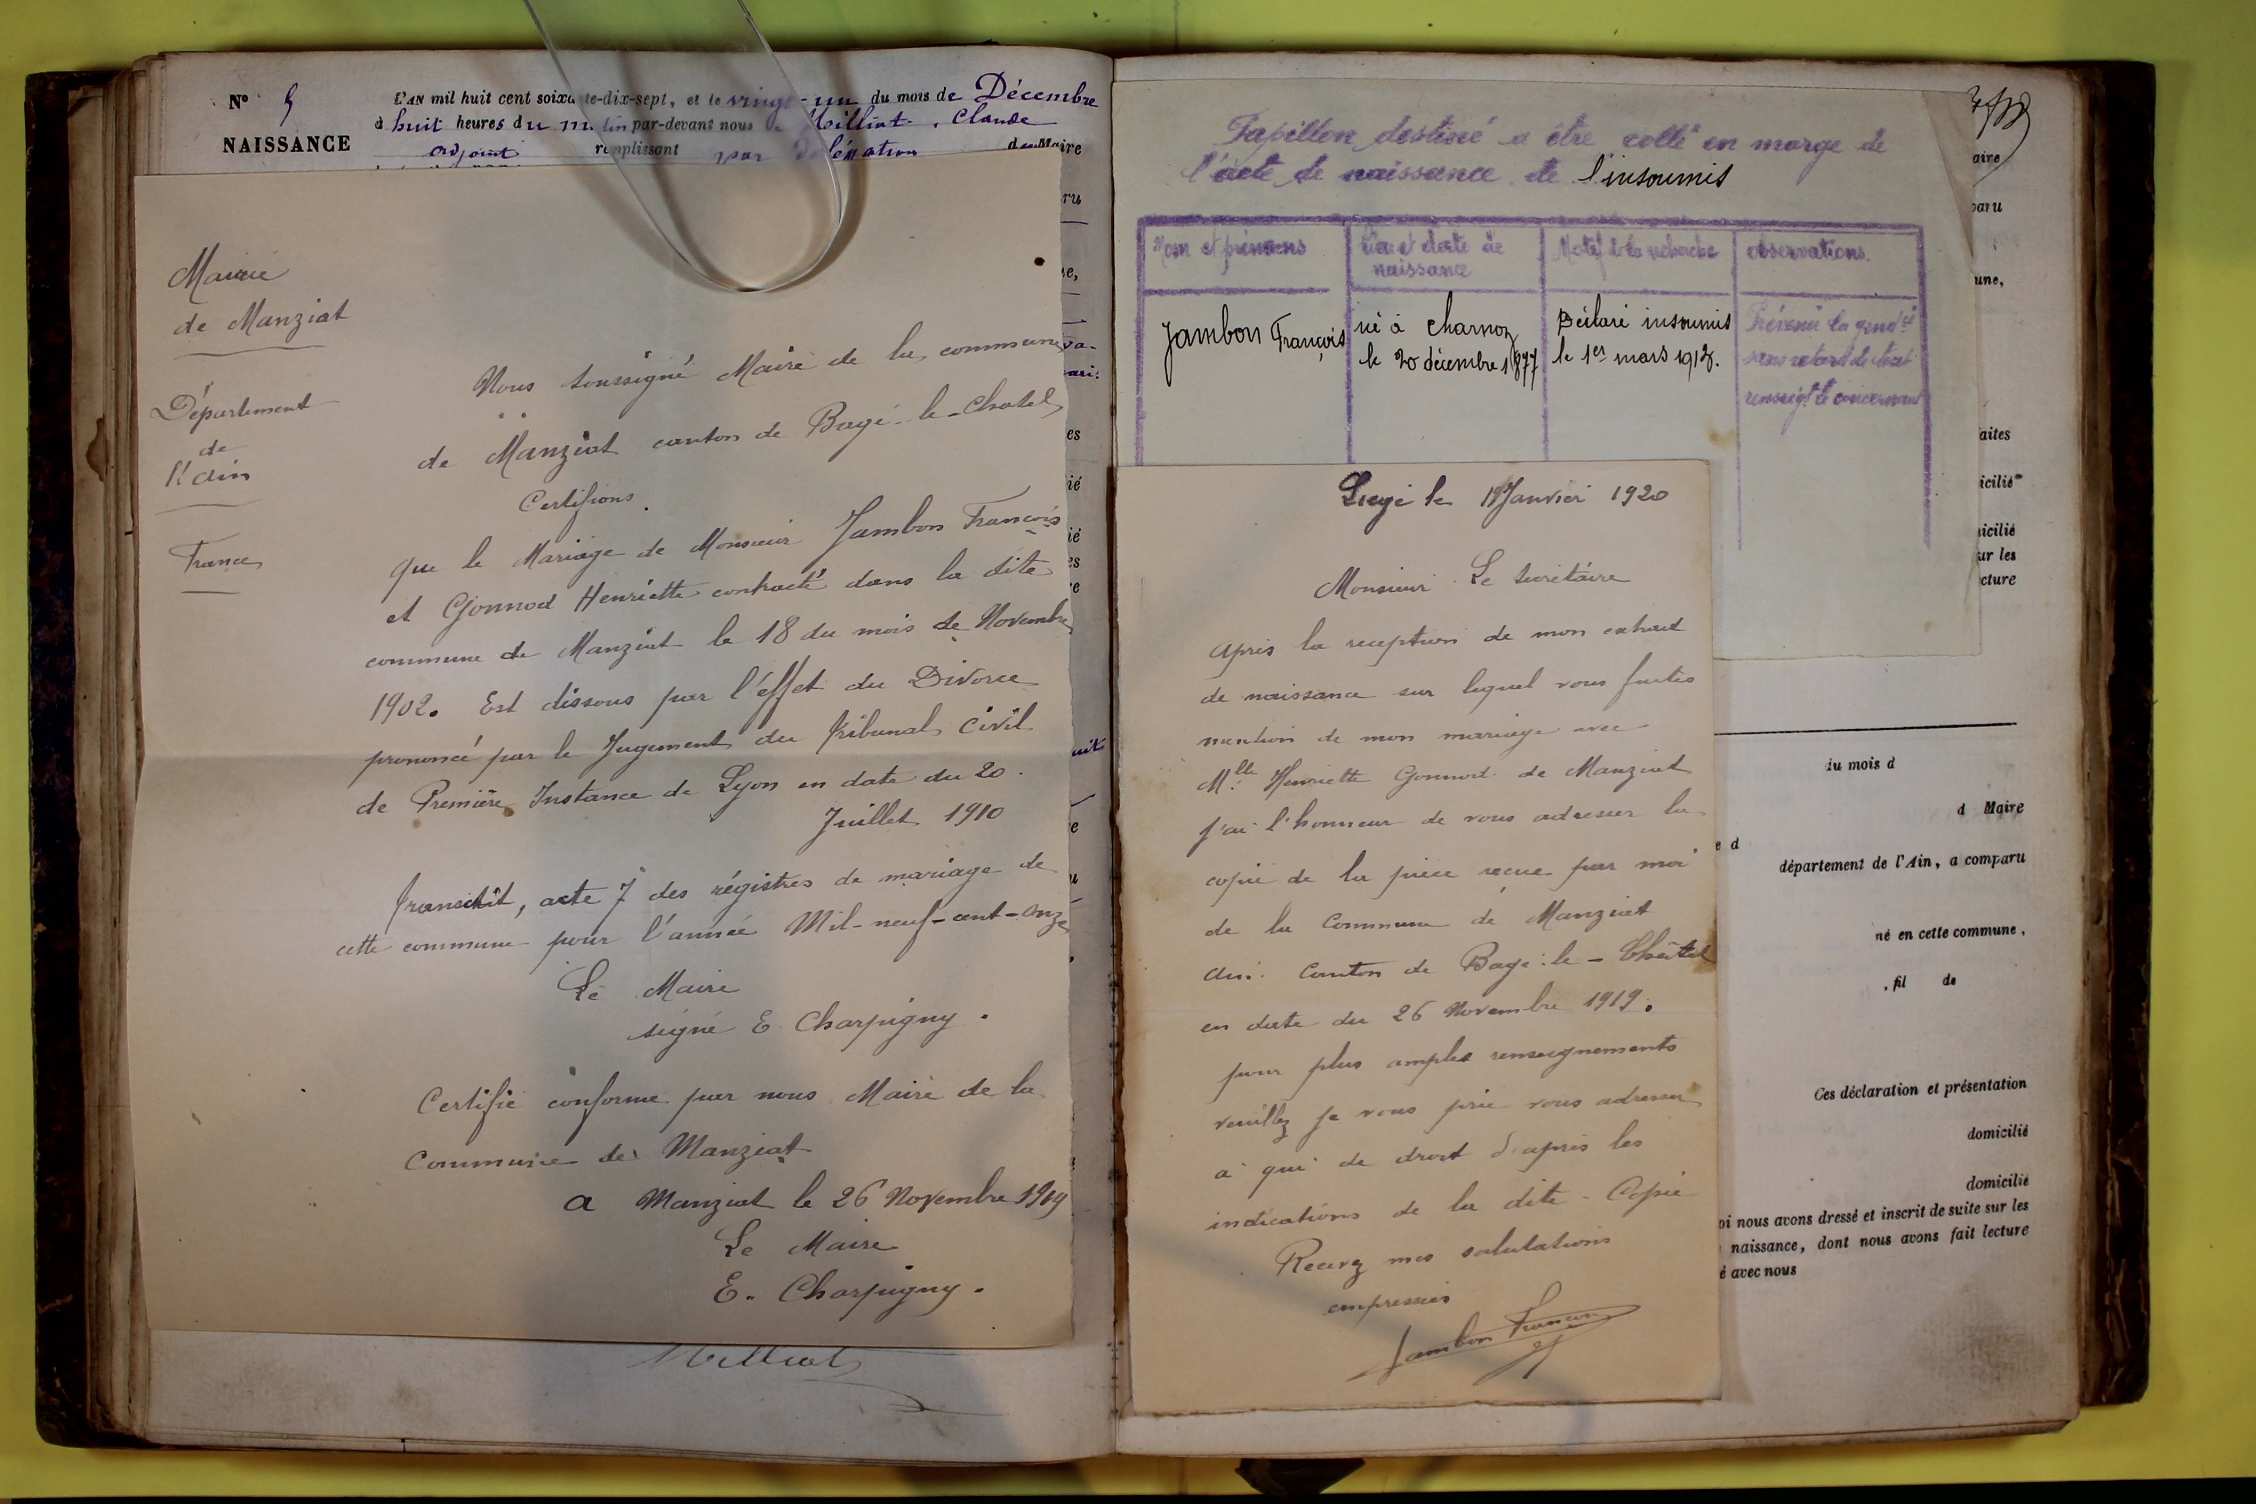 N° 5
NAISSANCE
L'AN mil huit cent soixante-dix-sept, et le vingt-un du mois de Décembre
à huit heures du matin par-devant nous Milliat, Claude
adjoint remplissant par délégation du Maire
Mairie
de Manziat
Département
de
l'Ain
France
Nous soussigné Maire de la commune
de Manziat canton de Bagé-le-Chatel
Certifions.
que le Mariage de Monsieur Jambon François
et Gonnod Henriette contracté dans la dite
commune de Manziat le 18 du mois de Novembre
1902. Est dissous par l'éffet du Divorce
prononcé par le Jugement du Tribunal Civil
de Première Instance de Lyon en date du 20.
Juillet 1910
transcrit, acte 7 des régistres de mariage de
cette commune pour l'année Mil-neuf-cent-onze
Le Maire
signé E. Charpigny.
Certifié conforme par nous Maire de la
Commune de Manziat
a Manziat le 26 Novembre 1919
Le Maire
E. Charpigny.
Milliat
Papillon destiné a être collé en marge de
l'acte de naissance de l'insoumis
Nom et prénoms
Lieu et date de naissance
Motif de la recherche
observations.
Jambon François
né à Charnoz
le 20 décembre 1877
Déclaré insoumis
le 1er mars 1913.
Prévenir la gendie
sans retard de tout
renseigt le concernant
Liege le 19 Janvier 1920
Monsieur Le Secrétaire
Après la reception de mon extrait
de naissance sur lequel vous faites
mention de mon mariage avec
Mlle Henriette Gonnod de Manziat
j'ai l'honneur de vous adresser la
copie de la pièce reçue par moi
de la Commune de Manziat
Ain. Canton de Bagé-le-Châtel
en date du 26 Novembre 1919.
pour plus amples renseignements
veuillez je vous prie vous adresser
a qui de droit d'après les
indications de la dite - Copie
Recevez mes salutations
empressées
Jambon François
aire
paru
une,
faites
icilié
micilié
sur les
cture
du mois d
d Maire
e d
département de l'Ain, a comparu
né en cette commune,
, fil de
Ces déclaration et présentation
domicilié
domicilié
oi nous avons dressé et inscrit de suite sur les
naissance, dont nous avons fait lecture
é avec nous